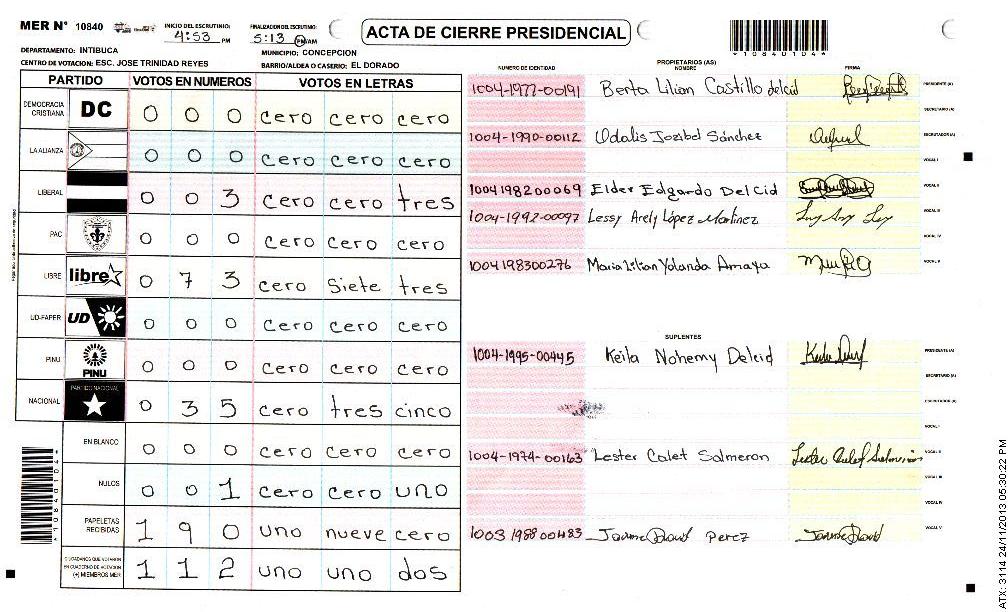 MER N° 10840
INICIO DEL ESCRUTINIO:
4:53 PM
FINALIZACION DEL ESCRUTINIO:
5:13 PM/AM
ACTA DE CIERRE PRESIDENCIAL
*10840104*
DEPARTAMENTO: INTIBUCA
MUNICIPIO: CONCEPCION
CENTRO DE VOTACION: ESC. JOSE TRINIDAD REYES
BARRIO/ALDEA O CASERIO: EL DORADO
PARTIDO VOTOS EN NUMEROS VOTOS EN LETRAS
DEMOCRACIA CRISTIANA DC 0 0 0 cero cero cero
LA ALIANZA 0 0 0 cero cero cero
LIBERAL 0 0 3 cero cero tres
PAC 0 0 0 cero cero cero
LIBRE libre 0 7 3 cero siete tres
UD-FAPER UD 0 0 0 cero cero cero
PINU PINU 0 0 0 cero cero cero
NACIONAL PARTIDO NACIONAL 0 3 5 cero tres cinco
EN BLANCO 0 0 0 cero cero cero
NULOS 0 0 1 cero cero uno
PAPELETAS RECIBIDAS 1 9 0 uno nueve cero
CIUDADANOS QUE VOTARON EN CUADERNO DE VOTACION (+) MIEMBROS MER 1 1 2 uno uno dos
*10840104*
PROPIETARIOS (AS)
NUMERO DE IDENTIDAD NOMBRE FIRMA
1004-1977-00191 Berta Lilian Castillo delcid PRESIDENTE (A)
SECRETARIO (A)
1004-1990-00112 Udalis Jozibel Sánchez ESCRUTADOR (A)
VOCAL I
1004198200069 Elder Edgardo Del Cid VOCAL II
1004-1992-00097 Lessy Arely López Martínez VOCAL III
VOCAL IV
1004198300276 Maria Lilian Yolanda Amaya VOCAL V
SUPLENTES
1004-1995-00445 Keila Nohemy Delcid PRESIDENTE (A)
SECRETARIO (A)
ESCRUTADOR (A)
VOCAL I
1004-1974-00163 Lester Calet Salmeron VOCAL II
VOCAL III
VOCAL IV
1003 1988 00483 Perez VOCAL V
ATX: 3114 24/11/2013 05:30:22 PM